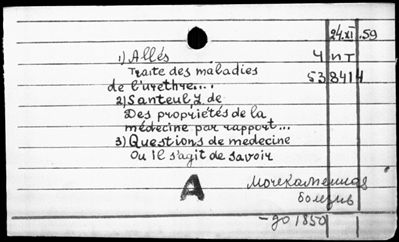 24.XI.59
1) Allés Ч ИТ
Traite des maladies 538414
de l'urethre...
2) Santeul, J de
Des propriétés de la
médecine par rapport...
3) Questions de medecine
Ou il s'agit de savoir
A
Мочекаменная
болезнь
- до 1850